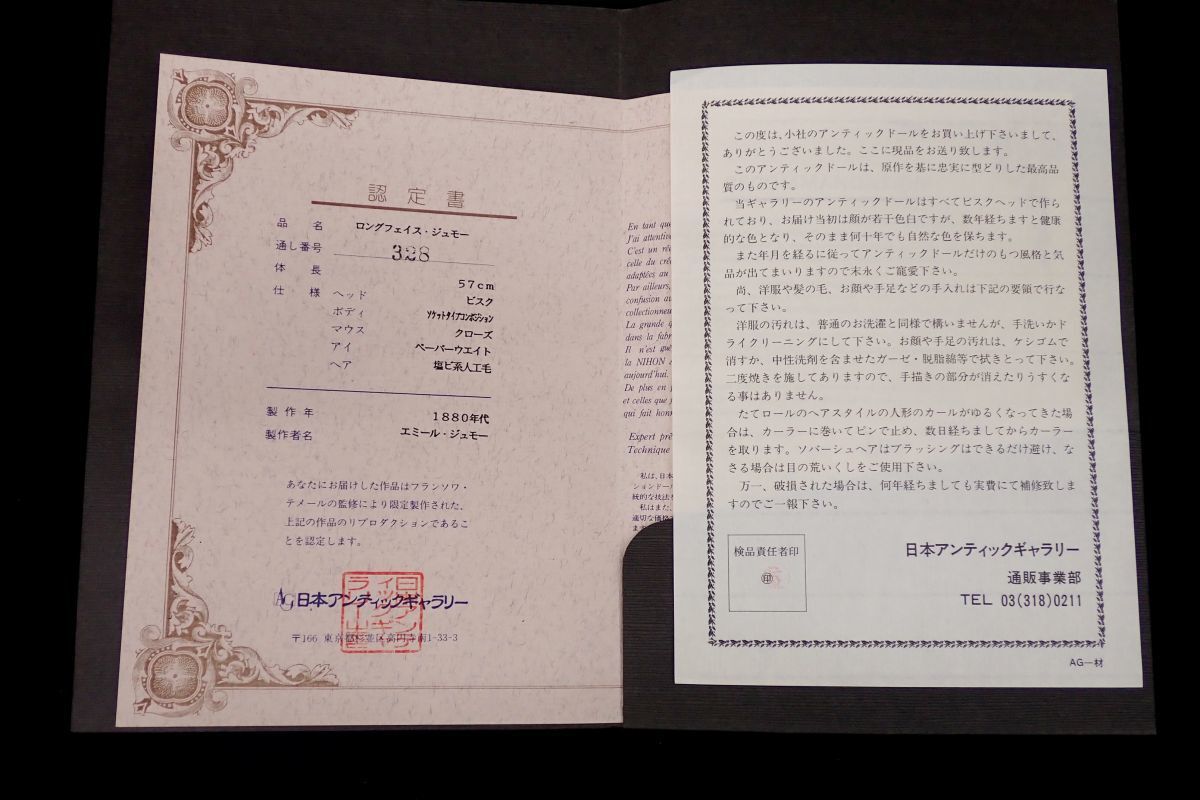 認定書
品名 ロングフェイス・ジュモー
通し番号 328
体長 57cm
仕様 ヘッド ビスク
ボディ ソケットタイプコンポジション
マウス クローズ
アイ ペーパーウエイト
ヘア 塩ビ系人工毛
製作年 1880年代
製作者名 エミール・ジュモー
あなたにお届けした作品はフランソワ・
テメールの監修により限定製作された、
上記の作品のリプロダクションであるこ
とを認定します。
AG 日本アンティックギャラリー
〒166 東京都杉並区高円寺南1-33-3
En tant que
J'ai attentiv
C'est un ré
celle du cré
adaptées au
Par ailleurs,
confusion au
collectionneu
La grande q
dans la fabr
Il n'est gué
la NIHON
aujourd'hui.
De plus en p
et celles que j
qui fait hon
Expert pré
Technique
私は、日本
ションドー
統的な技法
私はまた、
適切な価格
この度は、小社のアンティックドールをお買い上げ下さいまして、
ありがとうございました。ここに現品をお送り致します。
このアンティックドールは、原作を基に忠実に型どりした最高品
質のものです。
当ギャラリーのアンティックドールはすべてビスクヘッドで作ら
れており、お届け当初は顔が若干色白ですが、数年経ちますと健康
的な色となり、そのまま何十年でも自然な色を保ちます。
また年月を経るに従ってアンティックドールだけのもつ風格と気
品が出てまいりますので末永くご寵愛下さい。
尚、洋服や髪の毛、お顔や手足などの手入れは下記の要領で行な
って下さい。
洋服の汚れは、普通のお洗濯と同様で構いませんが、手洗いかド
ライクリーニングにして下さい。お顔や手足の汚れは、ケシゴムで
消すか、中性洗剤を含ませたガーゼ・脱脂綿等で拭きとって下さい。
二度焼きを施してありますので、手描きの部分が消えたりうすくな
る事はありません。
たてロールのヘアスタイルの人形のカールがゆるくなってきた場
合は、カーラーに巻いてピンで止め、数日経ちましてからカーラー
を取ります。ソバージュヘアはブラッシングはできるだけ避け、な
さる場合は目の荒いくしをご使用下さい。
万一、破損された場合は、何年経ちましても実費にて補修致しま
すのでご一報下さい。
検品責任者印
印
日本アンティックギャラリー
通販事業部
TEL 03(318)0211
AG—材